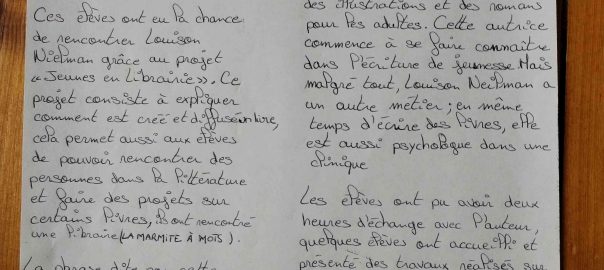 Ces élèves ont eu la chance
de rencontrer Louison
Nielman grâce au projet
«Jeunes en Librairie». Ce
projet consiste à expliquer
comment est créé et diffusé un livre,
cela permet aussi aux élèves
de pouvoir rencontrer des
personnes dans la littérature
et faire des projets sur
certains livres, ils ont rencontré
une libraire (LA MARMITE À MOTS).
La phrase
des illustrations et des romans
pour les adultes. Cette autrice
commence à se faire connaître
dans l'écriture de jeunesse Mais
malgré tout, Louison Neilman a
un autre métier; en même
temps d'écrire des livres, elle
est aussi psychologue dans une
clinique
Les élèves ont pu avoir deux
heures d'échange avec l'auteur,
quelques élèves ont accueilli et
présenté des travaux réalisés sur